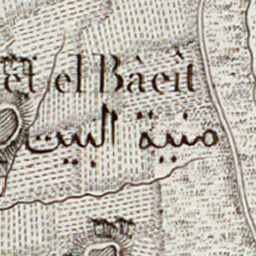 et el Bàeït
منية البيت